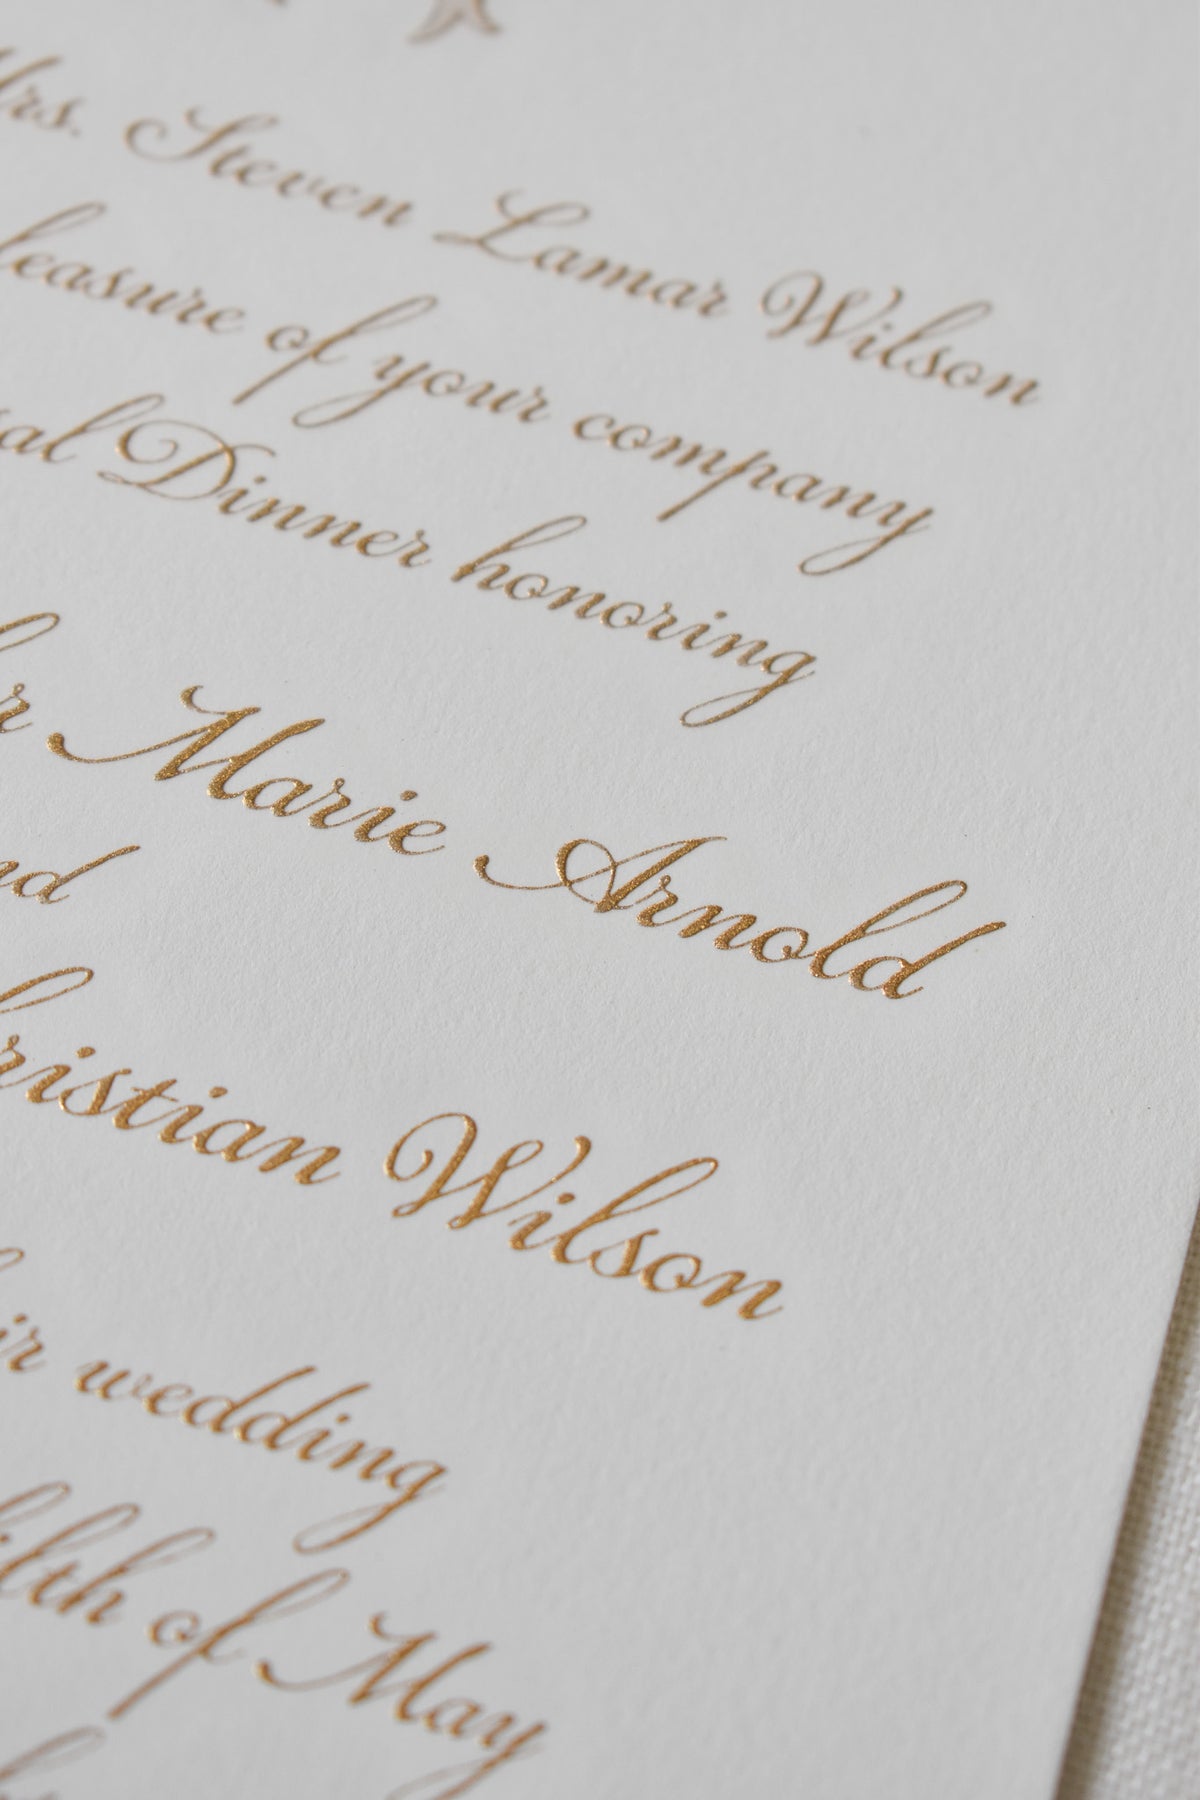 Mrs. Steven Lamar Wilson
leasure of your company
sal Dinner honoring
r Marie Arnold
nd
ristian Wilson
ir wedding
fifth of May